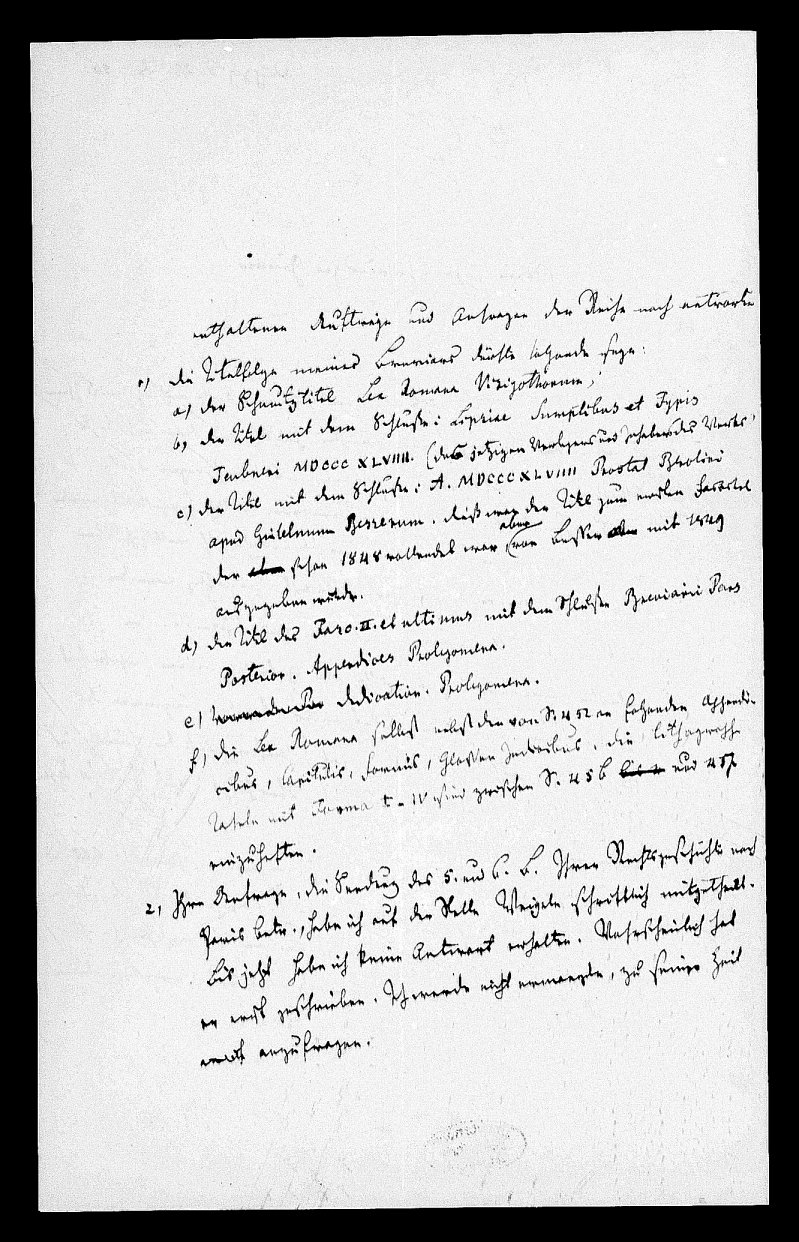 enthaltenen Aufträge und Anfragen der Reihe nach antworte
1) die Titelfolge meines Breviars dürfte folgende seyn:
a) der Schmutztitel Lex Romana Visigothorum,
b) der Titel mit dem Schluße: Lipsiae Sumptibus et Typis
Teubneri MDCCCXLVIIII. (des jetzigen Verlegers und Inhabers des Werks)
c) der Titel mit dem Schluße: A. MDCCCXLVIIII Prostat Berolini
apud Guilelmum Besserum. dieß war der Titel zum ersten
der schon 1848 vollendet war, aber von Besser mit 1849
ausgegeben wurde.
d) der Titel des Fasc. II. et ultimus mit dem Schluße Breviarii Pars
Posterior. Appendices Prolegomena.
e) Dedication. Prolegomena.
f) die Lex Romana selbst nebst den von S. 452 an folgenden Appendi-
cibus, Capitulis, Formis, Glossen Indicibus. die lithograph
Tafeln mit Forma I-IV sind zwischen S. 456 und 457
einzuheften.
2) Ihre Anfrage, die Sendung des 5. und 6. B. Ihrer Rechtsgeschichte nach
Paris betr., habe ich auf der Stelle schriftlich mitgetheilt.
Bis jetzt habe ich keine Antwort erhalten. Wahrscheinlich hat
er erst geschrieben. Ich werde nicht ermangeln, zu seiner Zeit
anzufragen.